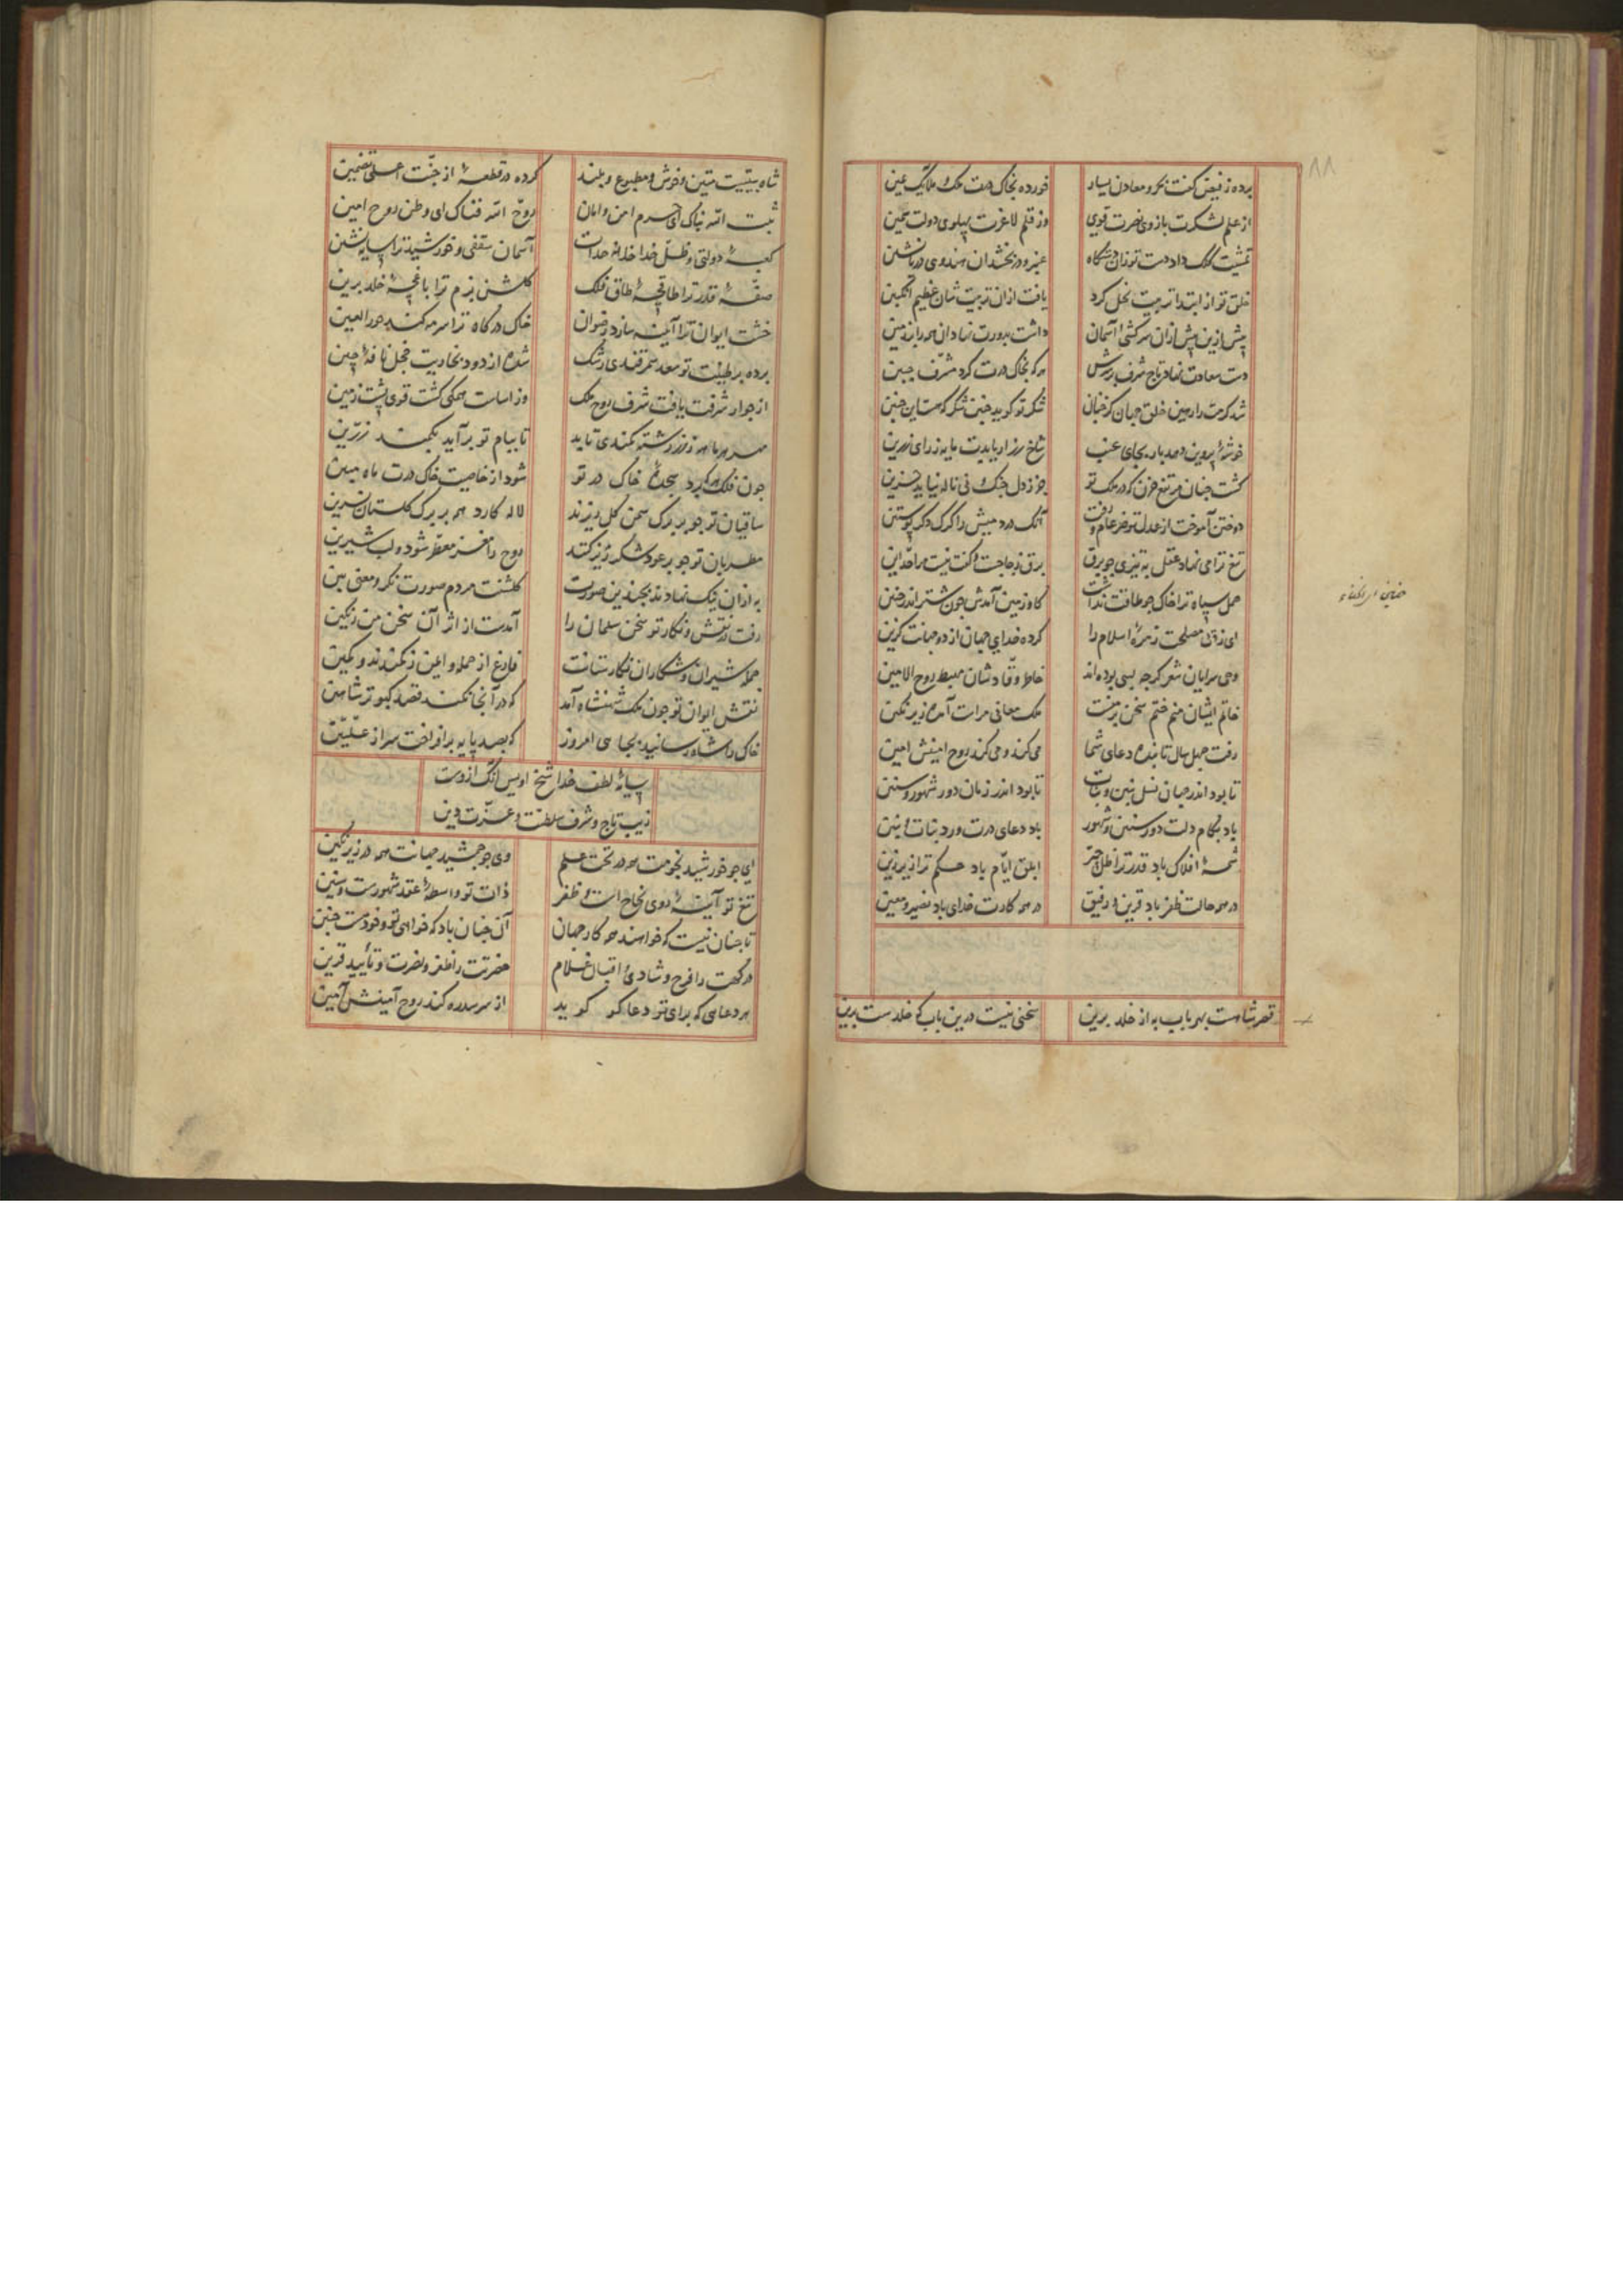 ٨٨
برده ز فیض کفت بحر و معادن یسار خورده بخاک درت ملک و ملایک یمین
از علم لشکرت بازوی نصرت قوی وز قلم لاغرت پهلوی دولت سمین
خلق تو از ابتدا تربیت نحل کرد یافت ازان تربیت شان عظیم انگبین
پیش ازین پیش ازان سرکشی آسمان داشت بدورت نهاد آن همه را بر زمین
دست سعادت نهاد تاج شرف بر سرش هر که بخاک درت کرد مشرف جبین
خوشهٔ پروین دهد بار بجای عنب شاخ رز ار یابدت مایه ز رای رزین
کشت چنان مرتفع حزن که در ملک تو جز ز دل چنگ و نی ناله نیاید حزین
دوختن آموخت از عدل تو خر عام و رفت آنک درد میش را گرگ دگر پوستین
تیغ ترا می نهاد عقل به تیزی چو برق برق بر جاجت و گفت نیست مرا حد این
حمل سپاه ترا خاک چو طاقت نداشت گاو زمین آمدش چون شتر اندر حنین
ای ز پی مصلحت زمرهٔ اسلام را کرده خدای جهان از دو جهانت گزین
وحی سرایان شعر گرچه بسی بوده اند خاطر وقاد شان مهبط روح الامین
خاتم ایشان منم ختم سخن بر منست ملک معانی مرات آمده زیر نگین
رفت چهل سال تا بنده دعای شما می کند و می کند روح امینش امین
تا بود اندر جهان نسل بنین و بنات تا بود اندر زمان دور شهور و سنین
باد بکام دلت دور سنین و شهور باد دعای درت ورد بنات و بنین
شمسهٔ افلاک باد قدر ترا ظل چتر ابلق ایام باد حکم ترا زیر زین
در همه حالت ظفر باد قرین و رفیق در همه کارت خدای باد نصیر و معین
قصر شاهست بهر باب به از خلد برین سخنی نیست درین باب که خلدست برین
شاه بیتیست متین و خوش و مطبوع و بلند کرده در قطعهٔ از جنت اعلی تضمین
ثبت الله بناک ای حرم امن و امان روح الله فناک ای وطن روح امین
کعبهٔ دولتی و ظل خدا خلد خدات آسمان سقفی و خورشید ترا سایه نشین
صفهٔ قدر ترا طاقچهٔ طاق فلک گلشن بزم ترا باغچهٔ خلد برین
خشت ایوان ترا آینه سازد رضوان خاک درگاه ترا سرمه کند حور العین
برده بر طینت تو سغد سمرقندی رشک شده از دود بخاریت خجل نافهٔ چین
از جوار شرفت یافت شرف روح ملک وز اساست همگی گشت قوی پشت زمین
مهر هر بامه ز زر رشته کمندی تابد تا ببام تو برآید بکمند زرین
چون فلک هر که برد سجدهٔ خاک در تو شود از خاصیت خاک درت ماه مبین
ساقیان تو چو بر برگ سمن گل ریزند لاله کارد همه بر برگ گلستان نسرین
مطربان تو چو بر عود شکر ریز کنند روح را مغز معطر شود و لب شیرین
به ازان نیک نهادند بچندین صورت گلشنت مردم صورت نگر و معنی بین
رفت در نقش و نگار تو سخن سلمان را آمدست از اثر آن سخن من رنگین
جمله شیران و شکاران نگارستانت فارغ از حمله و ایمن ز گزندند و کمین
نقش ایوان تو چون ملک شهنشاه آمد که در آنجا نکند قصد کبوتر شاهین
خاک را شاه رسانید بجایی امروز که بصد پایه برافراخت سر از علیین
سایهٔ لطف خدا شیخ اویس آنک ازوست
زیب تاج و شرف سلطنت و عزت دین
ای چو خورشید نجومت همه در تحت علم وی چو جمشید جهانت همه در زیر نگین
تیغ تو آینهٔ روی نجاح است و ظفر ذات تو واسطهٔ عقد شهورست و سنین
تا چنان نیست که خواهند همه کار جهان آن چنان باد که خواهی تو و خودست چنین
درگهت را فرح و شادی و اقبال غلام حضرتت را ظفر و نصرت و تأیید قرین
هر دعایی که برای تو دعا گو گوید از سر سدره کند روح آمینش آمین